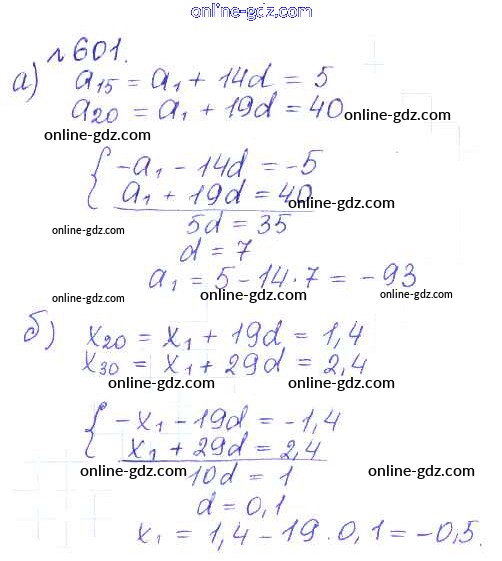 online-gdz.com
№601.
а) a₁₅ = a₁ + 14d = 5
a₂₀ = a₁ + 19d = 40
online-gdz.com online-gdz.com
{ -a₁ - 14d = -5
a₁ + 19d = 40
online-gdz.com
5d = 35
online-gdz.com online-gdz.com
d = 7
a₁ = 5 - 14·7 = -93
online-gdz.com online-gdz.com
б) x₂₀ = x₁ + 19d = 1,4
x₃₀ = x₁ + 29d = 2,4
online-gdz.com online-gdz.com
{ -x₁ - 19d = -1,4
x₁ + 29d = 2,4
online-gdz.com online-gdz.com
10d = 1
d = 0,1
x₁ = 1,4 - 19·0,1 = -0,5.